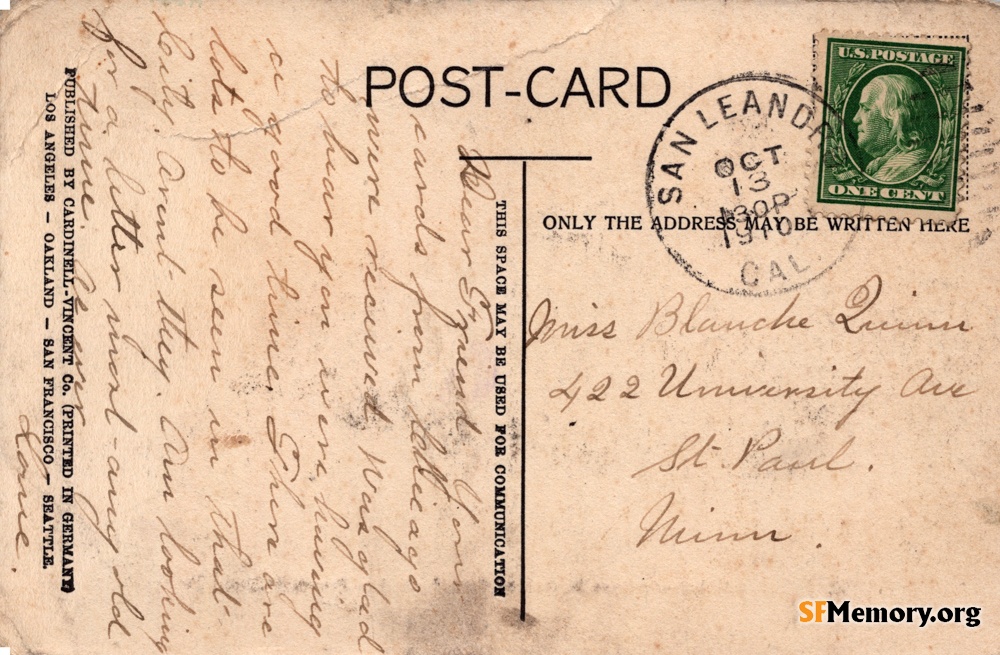 POST-CARD
U.S. POSTAGE
ONE CENT
SAN LEANDRO
OCT
13
130P
1910
CAL.
THIS SPACE MAY BE USED FOR COMMUNICATION
ONLY THE ADDRESS MAY BE WRITTEN HERE
Dear Friend Your
cards from Chicago
were received. Was glad
to hear you were having
a good time. There are
lots to be seen in that
City. Arent they. Am looking
for a letter most any old
time.
Miss Blanche Quinn
422 University Ave
St. Paul.
Minn.
PUBLISHED BY CARDINELL-VINCENT Co. (PRINTED IN GERMANY)
LOS ANGELES – OAKLAND – SAN FRANCISCO – SEATTLE.
SFMemory.org